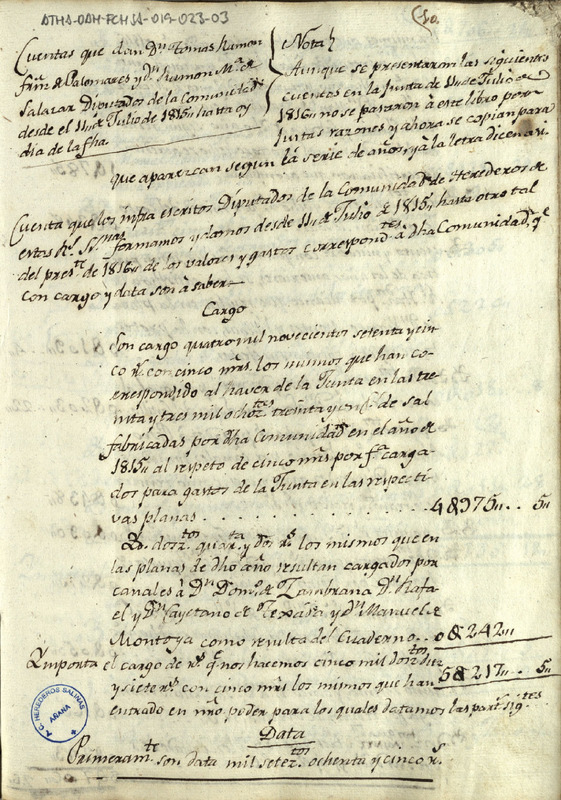 ATHA-DAH-FCHSA-019-023-03
Cuentas que dan Dn. Tomas Ramon
frñz de Palomares y Dn. Ramon Ma. de
Salazar Diputados de la Comunidad
desde el 11,, de Julio de 1815,, hasta oy
dia de la fha.
Nota
Aunque se presentaron las siguientes
cuentas en la Junta de 11,, de Julio de
1816,, no se pasaron à este libro por
justas razones y ahora se copian para
que aparezcan segun la serie de años, y à la letra dicen asi
Cuenta que los infra escritos Diputados de la Comunidad de Herederos de
estas Rs. Salinas formamos y damos desde 11,, de Julio de 1815,, hasta otro tal
del preste. de 1816,, de los valores y gastos correspondtes. à dha Comunidad, qe.
con cargo y data son à saber
Cargo
Son cargo quatro mil novecientos setenta y cin
co rs. con cinco mrs. los mismos que han co-
rrespondido al haver de la Junta en las tre
inta y tres mil ochoztos. treinta y f. de sal
fabricadas por dha Comunidad en el año de
1815,, al respeto de cinco mrs por fa. carga-
dos para gastos de la Junta en las respecti
vas planas . . . . . . . . 4&975,, . . 5,,
Yd. dosztos. quarta. y dos rs. los mismos que en
las planas de dho año resultan cargados por
canales à Dn. Domo. de Zambrana Dn. Rafa-
el y Dn. Cayetano de Texada y Dn. Manuel de
Montoya como resulta del Cuaderno . . 0&242,,
Ymponta el cargo de rs. q. nos hacemos cinco mil dosztos. diez
y siete rs. con cinco mrs los mismos que han 5&217,, . . 5,,
entrado en nro poder para los quales datamos las parts. sigtes.
Data
Primeramte. son data mil seteztos. ochenta y cinco rs.
A.C. HEREDEROS SALINAS
AÑANA